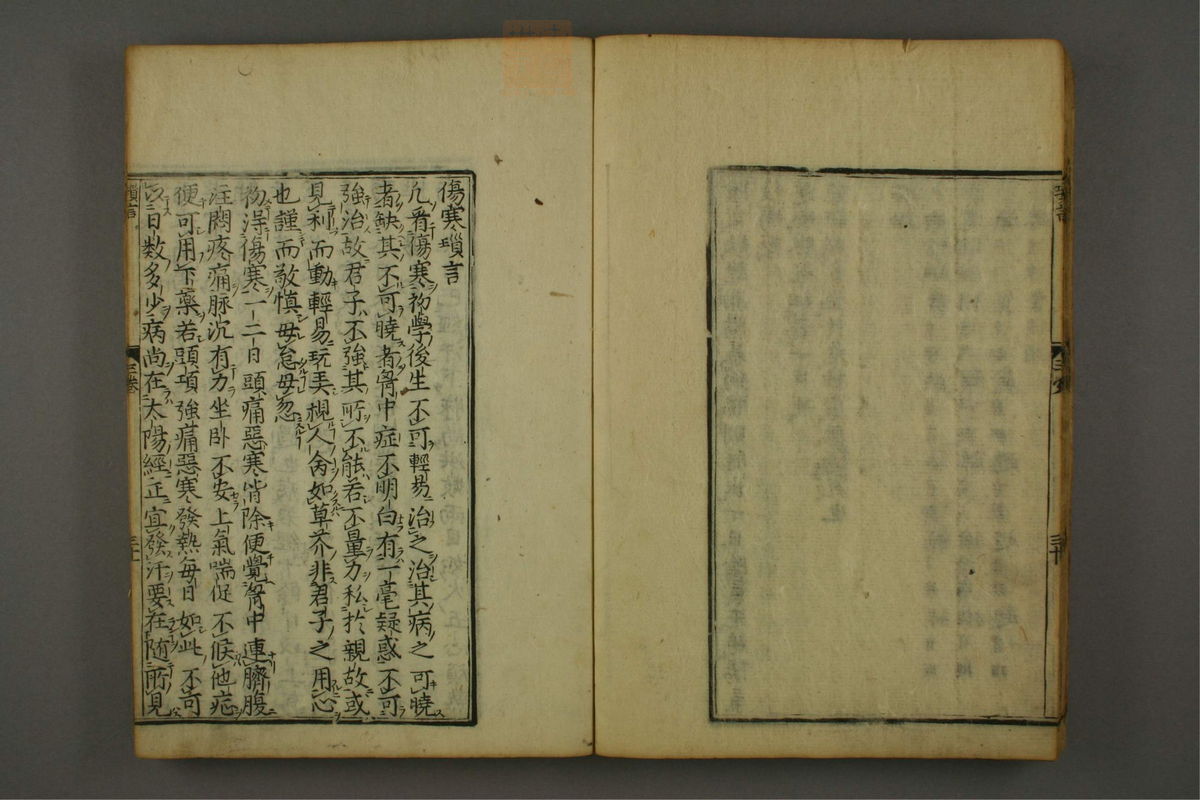 傷寒瑣言
凡看傷寒初學後生不可輕易治之治其病之可曉
者缺其不可曉者胷中症不明白有一毫疑惑不可
強治故君子不強其所不能若不量力私於親故或
見利而動輕易玩弄視人侖如草芥非君子之用心
也謹而敬慎毋怠毋忽
初得傷寒一二日頭痛惡寒皆除便覺胷中連臍腹
注悶疼痛脉沉有力坐卧不安上氣喘促不候他症
便可用下藥若頭項強痛惡寒發熱每日如此不可
以日数多少病尚在太陽經正宜發汗要在随所見
瑣言
三巻
三十一
三十